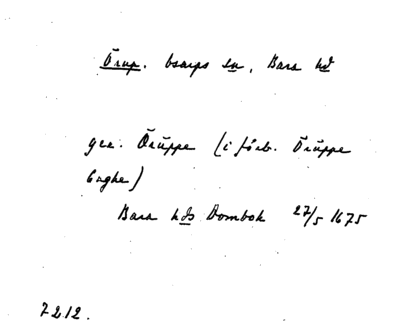 Örup. Esarps sn, Bara hd
gen. Örüppe (i förb. Örüppe
Enghe)
Bara hds Dombok 27/5 1675
7212.